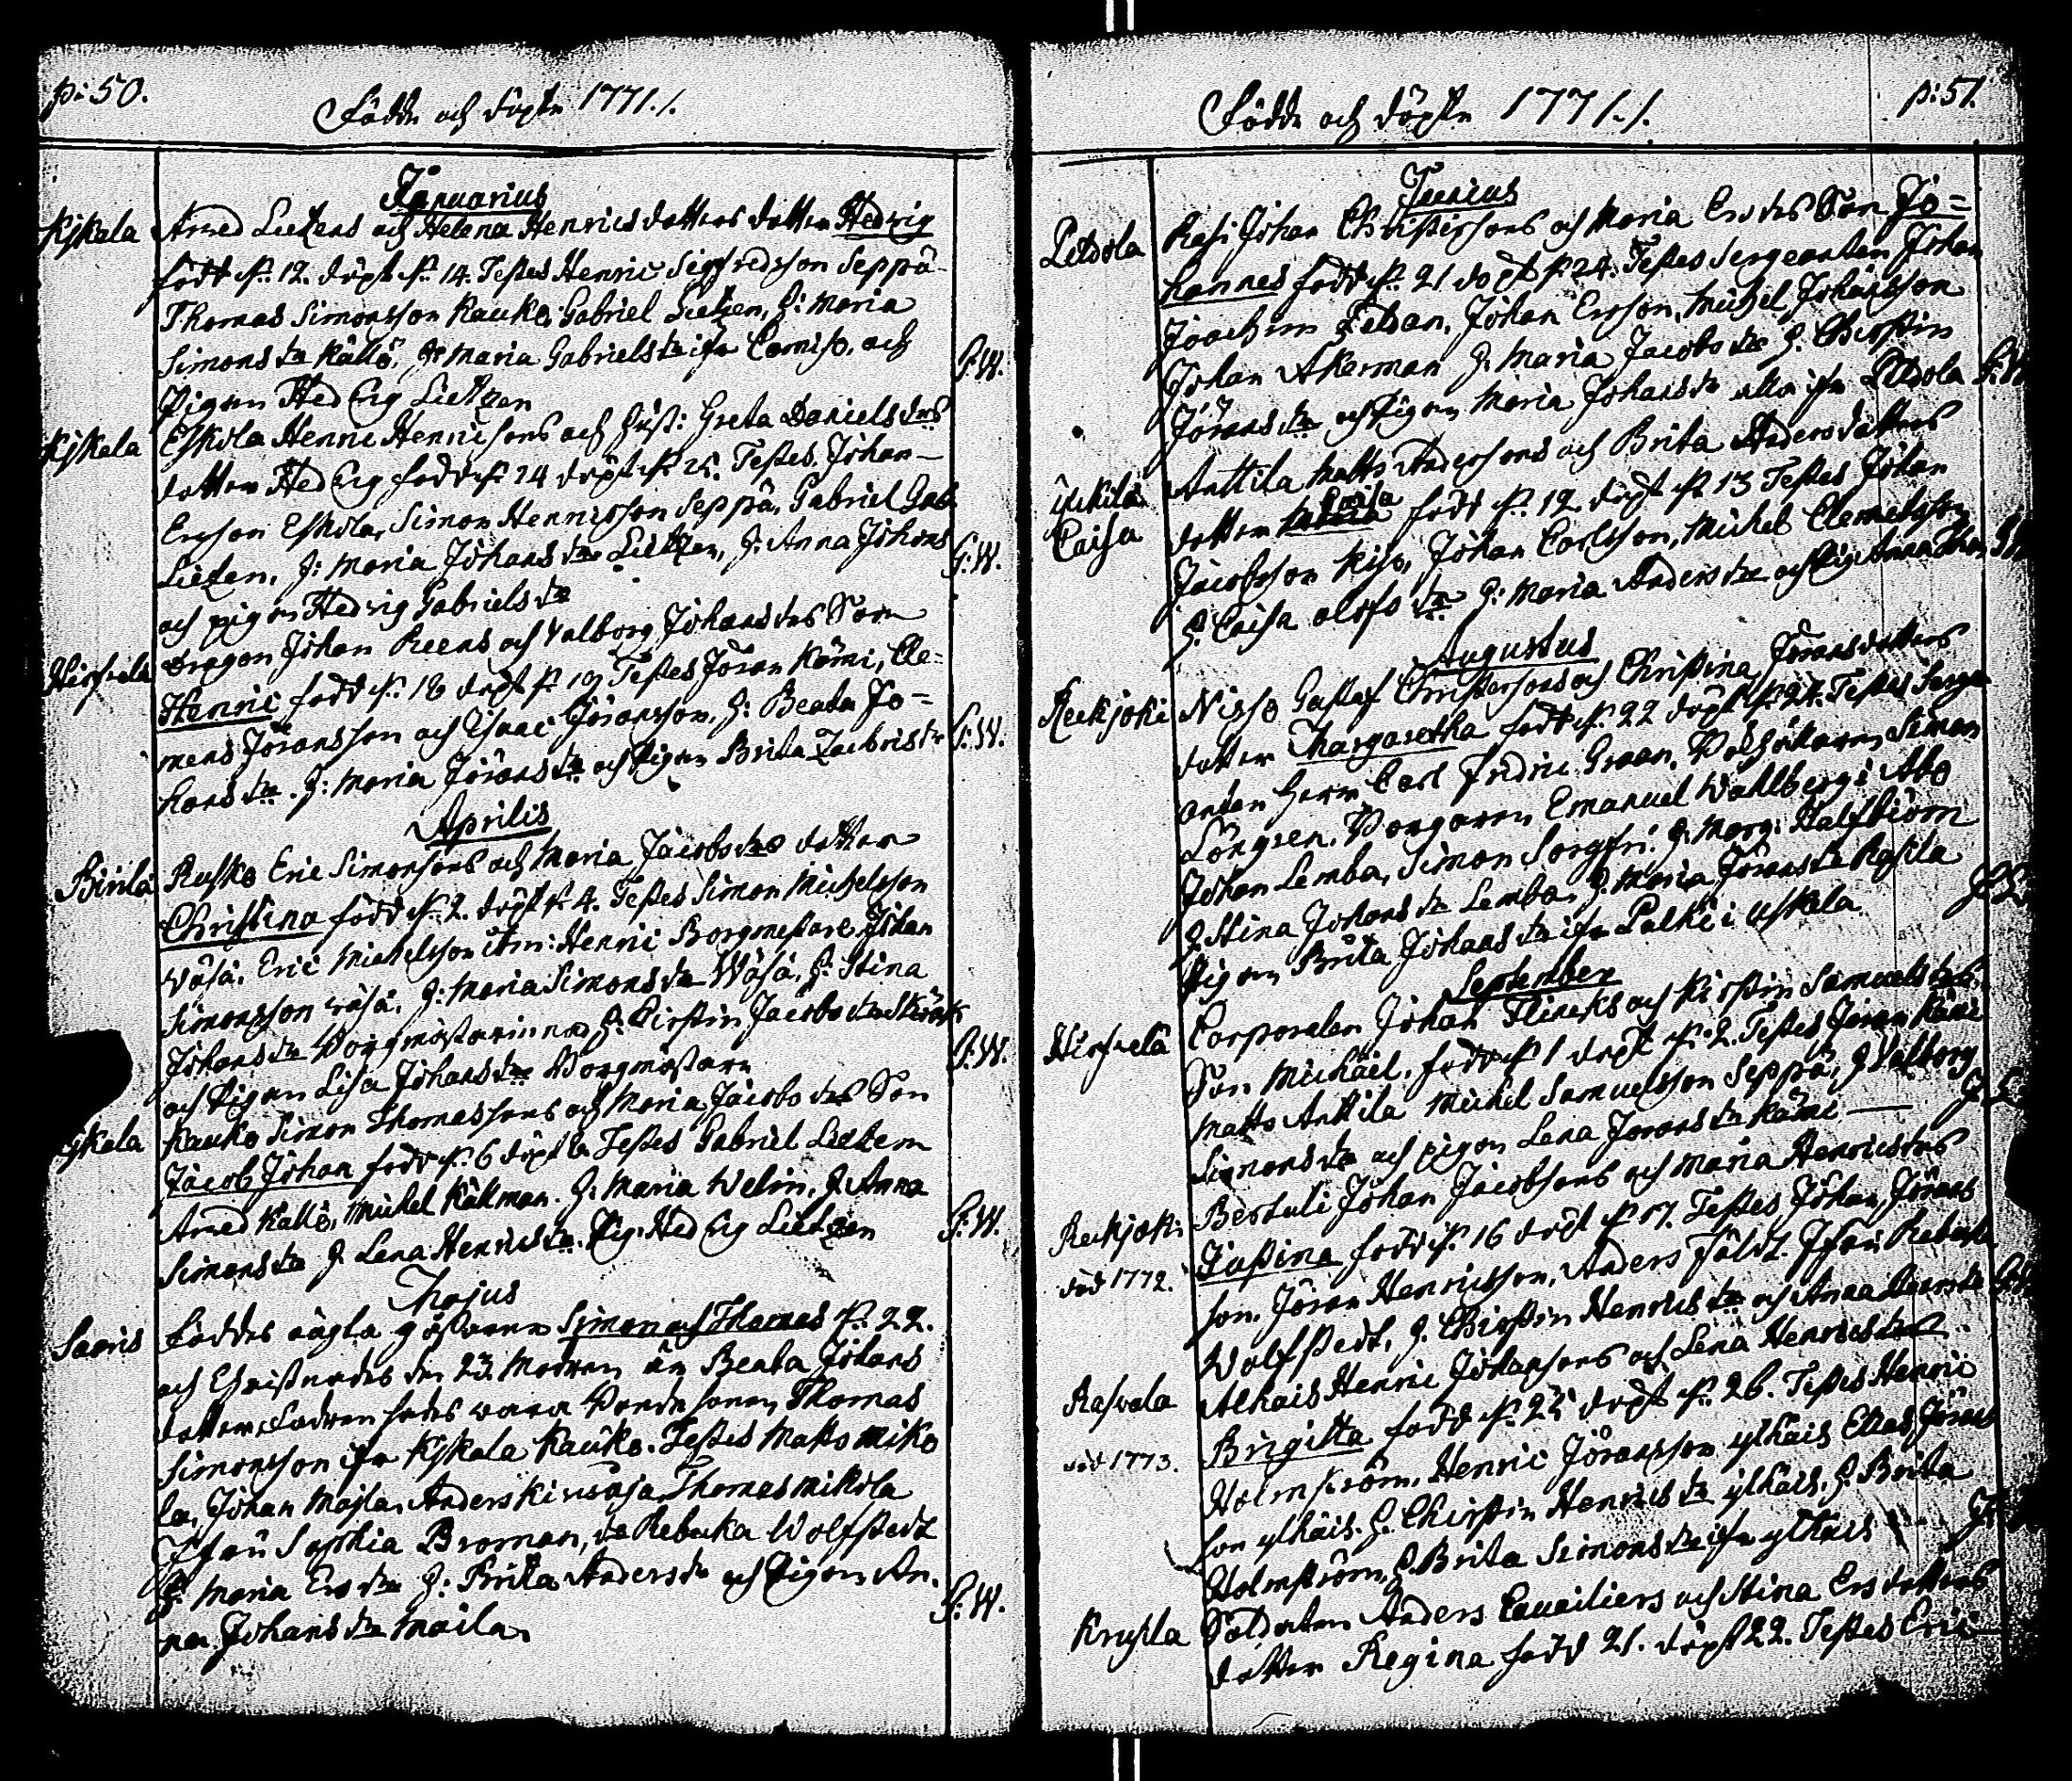 p: 50.
Födde och döpte 1771./.
Januarius
Kiskala Arved Lietzens och Helena Henrics dotters dotter Hedvig
född d. 12. döpt d. 14. Testes Henric Sigfredsson Seppä
Thomas Simonsson Kauko, Gabriel Lietzen, H: Maria
Simons dr Källö, H: Maria Gabriels dr ifr Comiso, och
Pigan Hedvig Lietzen G:W.
Kiskala Eskola Henric Henricsons och Hust: Greta Daniels drs
dotter Hedvig född d. 24 döpt d. 25. Testes, Johan
Ericson Eskola, Simon Henricsson Seppä, Gabriel Gab
Lietzen, H: Maria Johans dr Lietzen, H: Anna Johans G:W.
och pigan Hedvig Gabriels dr
Hirfvela Dragon Johan Reens och Valborg Johans drs Son
Henric född d. 18 döpt d. 19 Testes Jöran Kämi, Cle=
mens Jöransson och Isaac Jöransson, H: Beata Jo= G:W.
hans dr. H: Maria Jörans dr och Pigan Brita Zachris dr
Aprilis
Pirilä Rusko Eric Simonsons och Maria Jacobs drs dotter
Christina född d. 2. döpt d. 4. Testes Simon Michelsson
Väsä, Eric Michelsson item: Henric Borgmestare Johan
Simonsson väsä, H: Maria Simons dr Wäsä, H: Stina
Johans dr Borgmästarinna, H: Cirstin Jacobs dr
och Pigan Lisa Johans dr Borgmästare G:W.
Kiskala Kauko Simon Thomassons och Maria Jacobs drs Son
Jacob Johan född d. 6 döpt Testes Gabriel Lietzen
Arved Källö, Michel Källman. H: Maria Welin, H: Anna
Simons dr H Lena Henrics dr. Pig: Hedvig Lietzen G:W.
Majus
Saaris Föddes oägta gossarne Simon och Thomas d. 22.
och Christnades den 23. Modren är Beata Johans
dotter, Fadren sades vara Bondesonen Thomas
Simonsson ifr Kiskala Kauko. Testes Matts Miko
la, Johan Majla, Anders Kiusoja, Thomas Mikola
Jfru Sophia Broman, do Rebecka Wolfstedt
H: Maria Ers dr H: Brita Anders dr och Pigan An- G:W.
na Johans dr Maila
p: 51.
Födde och döpte 1771./.
Junius
Letsola Rasi Johan Christersons och Maria Ers drs Son Jo=
hannes född d. 21 döpt d. 24. Testes Sergeanten Johan
Joachim Johan Ersson, Michel Johansson
Johan Åkerman H: Maria Jacobs dr H. Christin
Jörans dr och Pigan Maria Johans dr alla ifr Letsola
Caisa Anttila Matts Andersons och Brita Anders dotters
dotter Caisa född d. 12 döpt d. 13 Testes Johan
Jacobsson Johan Carlsson, Michel Clemetsson
H. Caisa Olofs dr H: Maria Anders dr och Pig: Anna
Augustus
Reckjoki Nisso Gustaf Christersons och Christina Jöransdotters
dotter Margaretha född d. 22 döpt d. 24. Testes Serge
anten Herr Carl Fredric Graan, Simon
Löngren, Borgaren Emanuel Wahlberg i Abo
Johan Lemba, Simon Sorgfri. H: Marg: Halfbiörn
H. Stina Johans dr Lemba, H. Maria Jörans dr Rasila
Pigan Brita Johans dr ifr Palki i Uskela
September
Hirfvelä Corporalen Johan Flincks och Kirstin Samuels drs
Son Michäel, född d. 1 döpt d. 2. Testes Jöran Kämi
Matts Anttila Michel Samuelsson Seppä, H Valborg
Simons dr och pigan Lena Jörans dr Kämi
Reckjoki Bertuli Johan Jacobsons och Maria Henrics drs
död 1772. Justina född d. 16 döpt d. 17. Testes Johan Jörans
son, Jöran Henricsson, Anders Fäldt. Jfru Rebecka
Wolfstedt, H. Christin Henrics dr och Anna
Rasvala Alhais Henric Johansons och Lena Henrics drs
död 1773. Brigitta född d. 25 döpt d. 26. Testes Henric
Holmström, Henric Jöransson ylhäis Elias Jörans
son ylhäis. H. Christin Henrics dr ylhäis. H. Brita
Holmström, H. Brita Simons dr ifr ylhäis
Krusila Soldaten Anders Cavailiers och Stina Ersdotters
dotter Regina född 21. döpt 22. Testes Eric